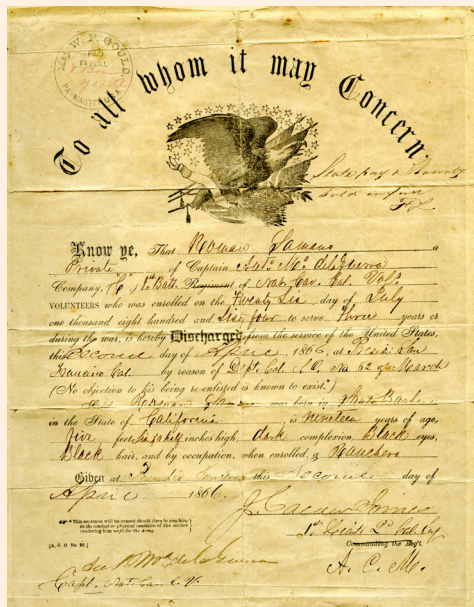 W. F. GOULD
PAID
IN FULL
PAYMASTER U.S.A.
To all whom it may Concern
State pay & Bounty
in full
Know ye, That Roman a
Private of Captain Anto. Ma. delaGuerra
Company, "C", 1st Batt. Regiment of Nat. Cav. Cal. Vols.
VOLUNTEERS who was enrolled on the Twenty Six day of July
one thousand eight hundred and Sixty four to serve Three years or
during the war, is hereby Discharged from the service of the United States,
this Second day of April, 1866, at Presidio San
Francisco Cal. by reason of Dept. Cal. S.O. No 62 of March
(No objection to his being re-enlisted is known to exist.*)
Said was born in Santa Barbara
in the State of California, is Nineteen years of age,
five feet inches high, dark complexion, Black eyes,
Black hair, and by occupation, when enrolled, a Ranchero
Given at Presidio this Second day of
April 1866.
*This sentence will be erased should there be anything
in the conduct or physical condition of the soldier
rendering him unfit for the Army.
[A. G. O. No. 99.]
1st Cal. Inf
Commanding the Reg't.
A. C. M.
Capt. Nat. Cav. C. V.